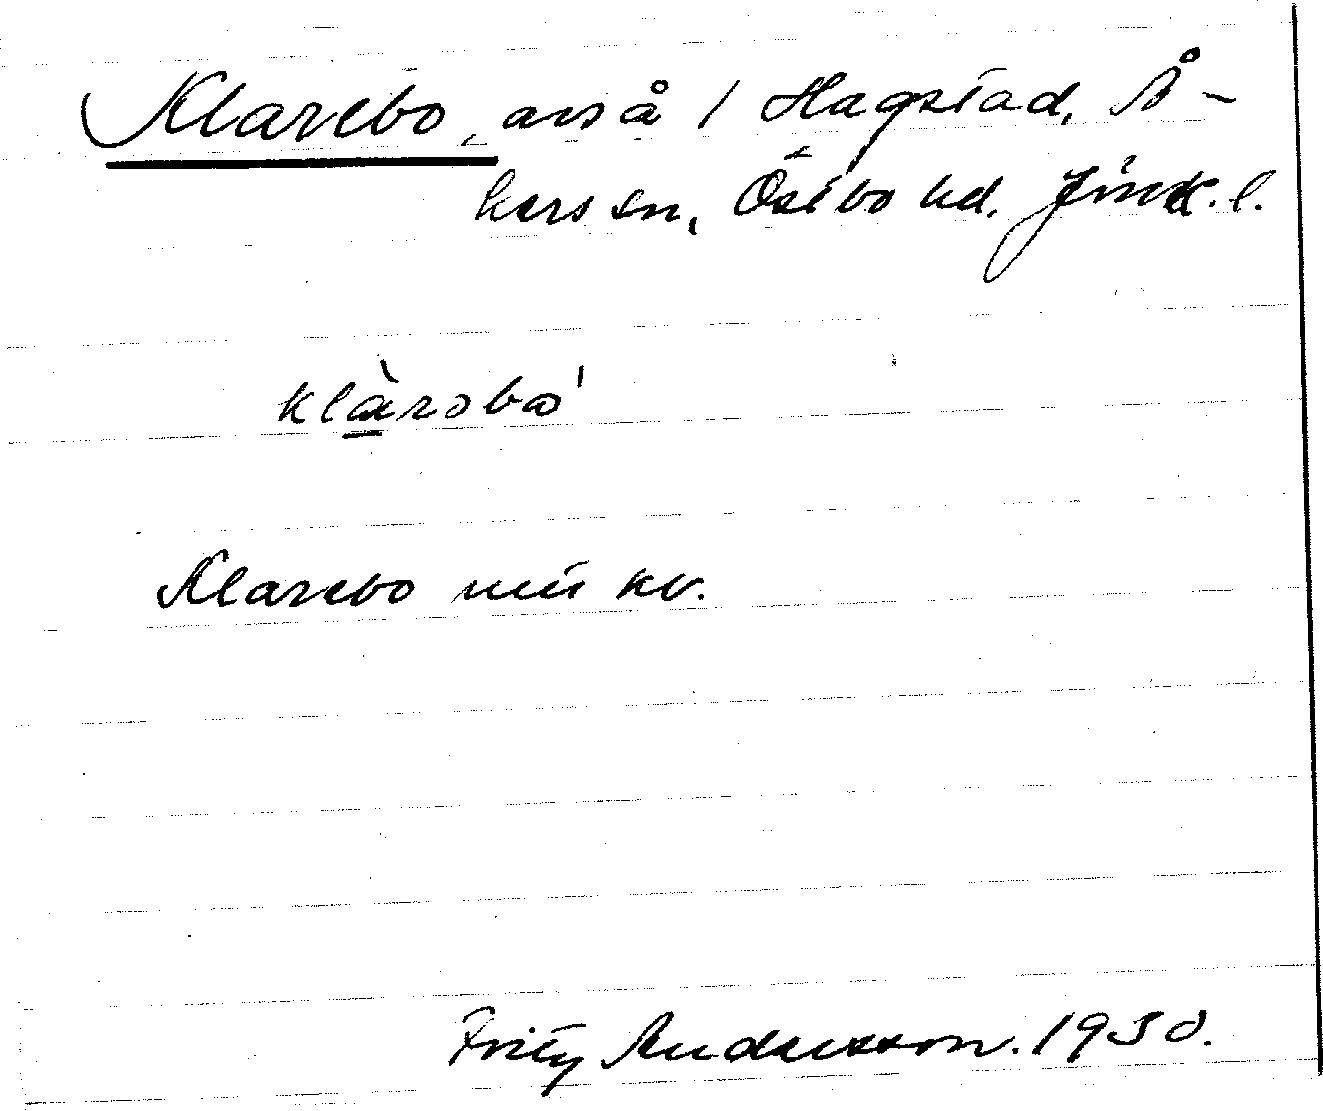 Klarebo, avs å / Hagstad, Å-
kers sn, Östbo hd. Jönk. l.
klàrəbo'
Klarebo mtl kv.
Fritz Andersson. 1930.